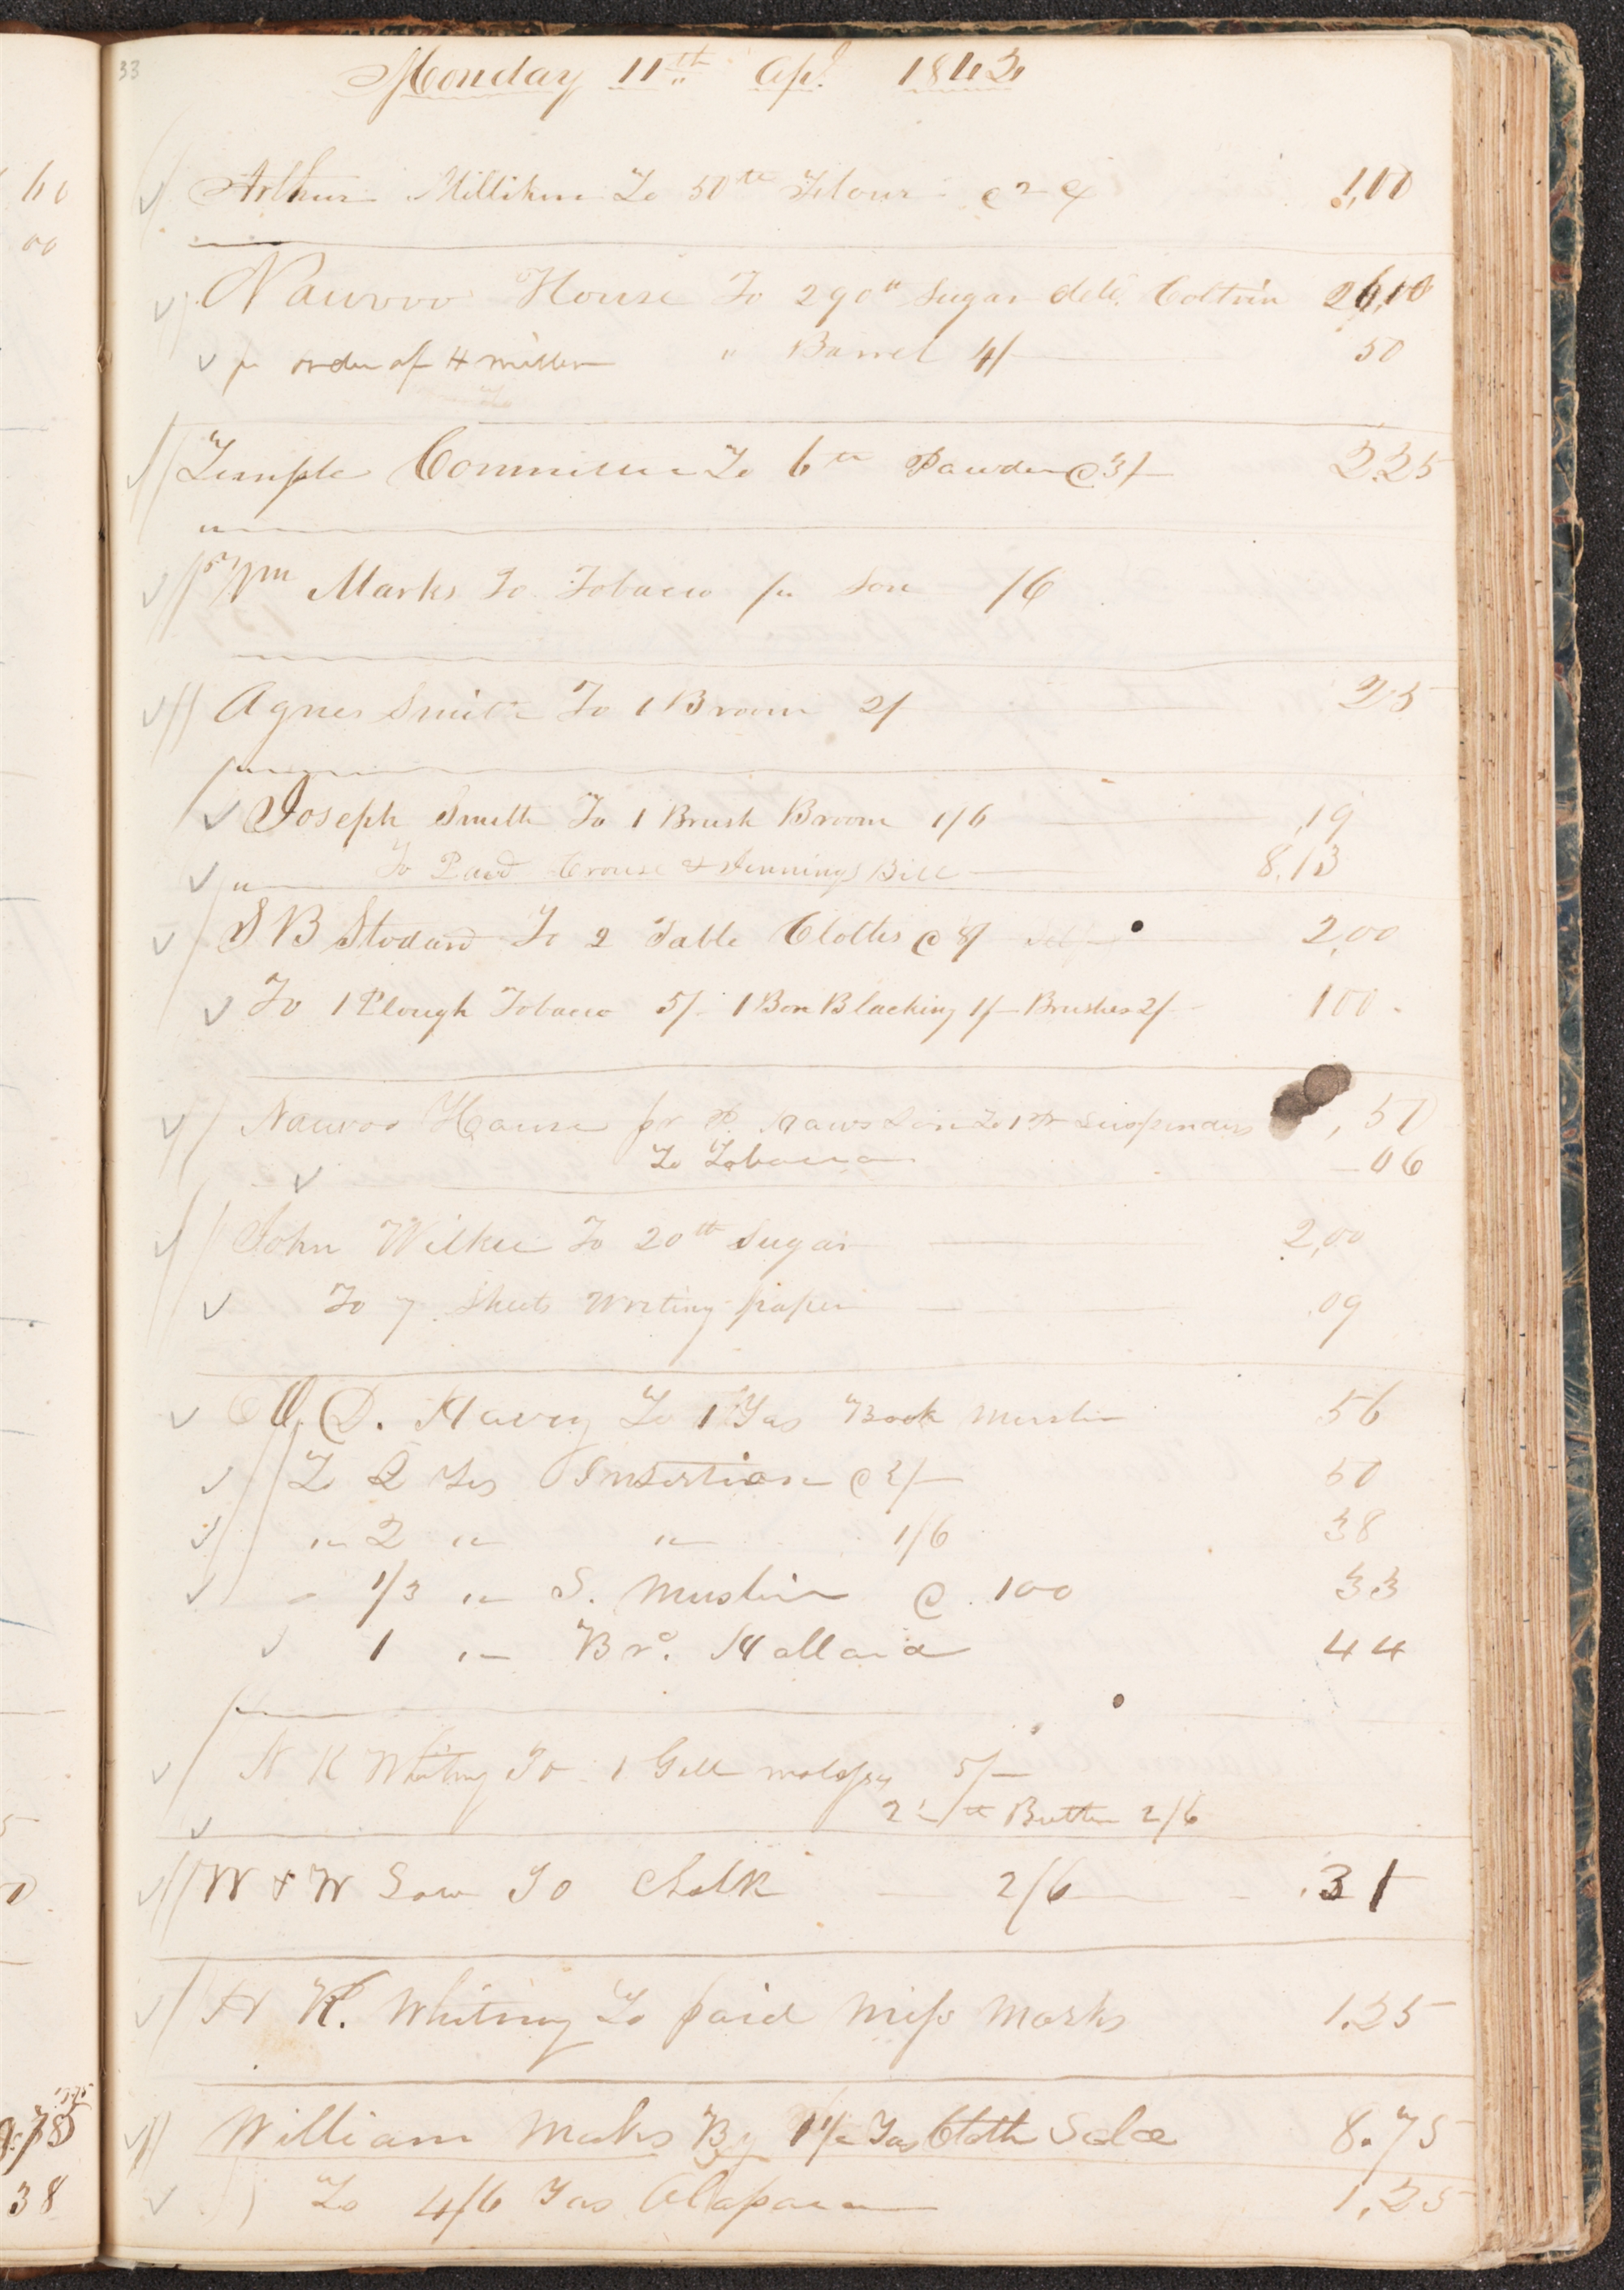 33
Monday 11th Apl. 1843
Arthur Milliken To 50 lb Flour @ 2 ¢ 1,00
Nauvoo House To 290 lb Sugar deld. Coltrin 26,10
pr order of H miller " Barrel 4/ 50
Temple Committee To 6 lb Powder @ 3/ 2.25
Wm Marks To Tobacco pr Son /6
Agnes Smith To 1 Broom 2/ 25
Joseph Smith To 1 Brush Broom 1/6 ,19
To Paid Crouse & Jennings Bill 8.13
S B Stodard To 2 Table Clothes @ 8/ 2,00
To 1 Plough Tobacco 5/- 1 Box Blacking 1/- Brushes 2/- 100
Nauvoo House pr To 1 Pr Suspenders ,50
To Tobacco 06
John Wilkie To 20 lb Sugar 2,00
To 7 Sheets Writing paper .09
O. D. Hovey To 1 Yds Book Muslin 56
To 2 Yds Insertion @ 2/- 50
" 2 " " 1/6 38
" 1/3 " S. Muslin @ .100 33
1 " Bro. Holland 44
N K Whitney To 1 Gall molassy 5/-
lb Butter 2/6
W & W Law To Chalk 2/6 .31
N K. Whitney To paid Miss Marks 1.25
William Marks By Yds Cloth 8.75
To 4/6 Yds Alapacca 1,25
60
00
38